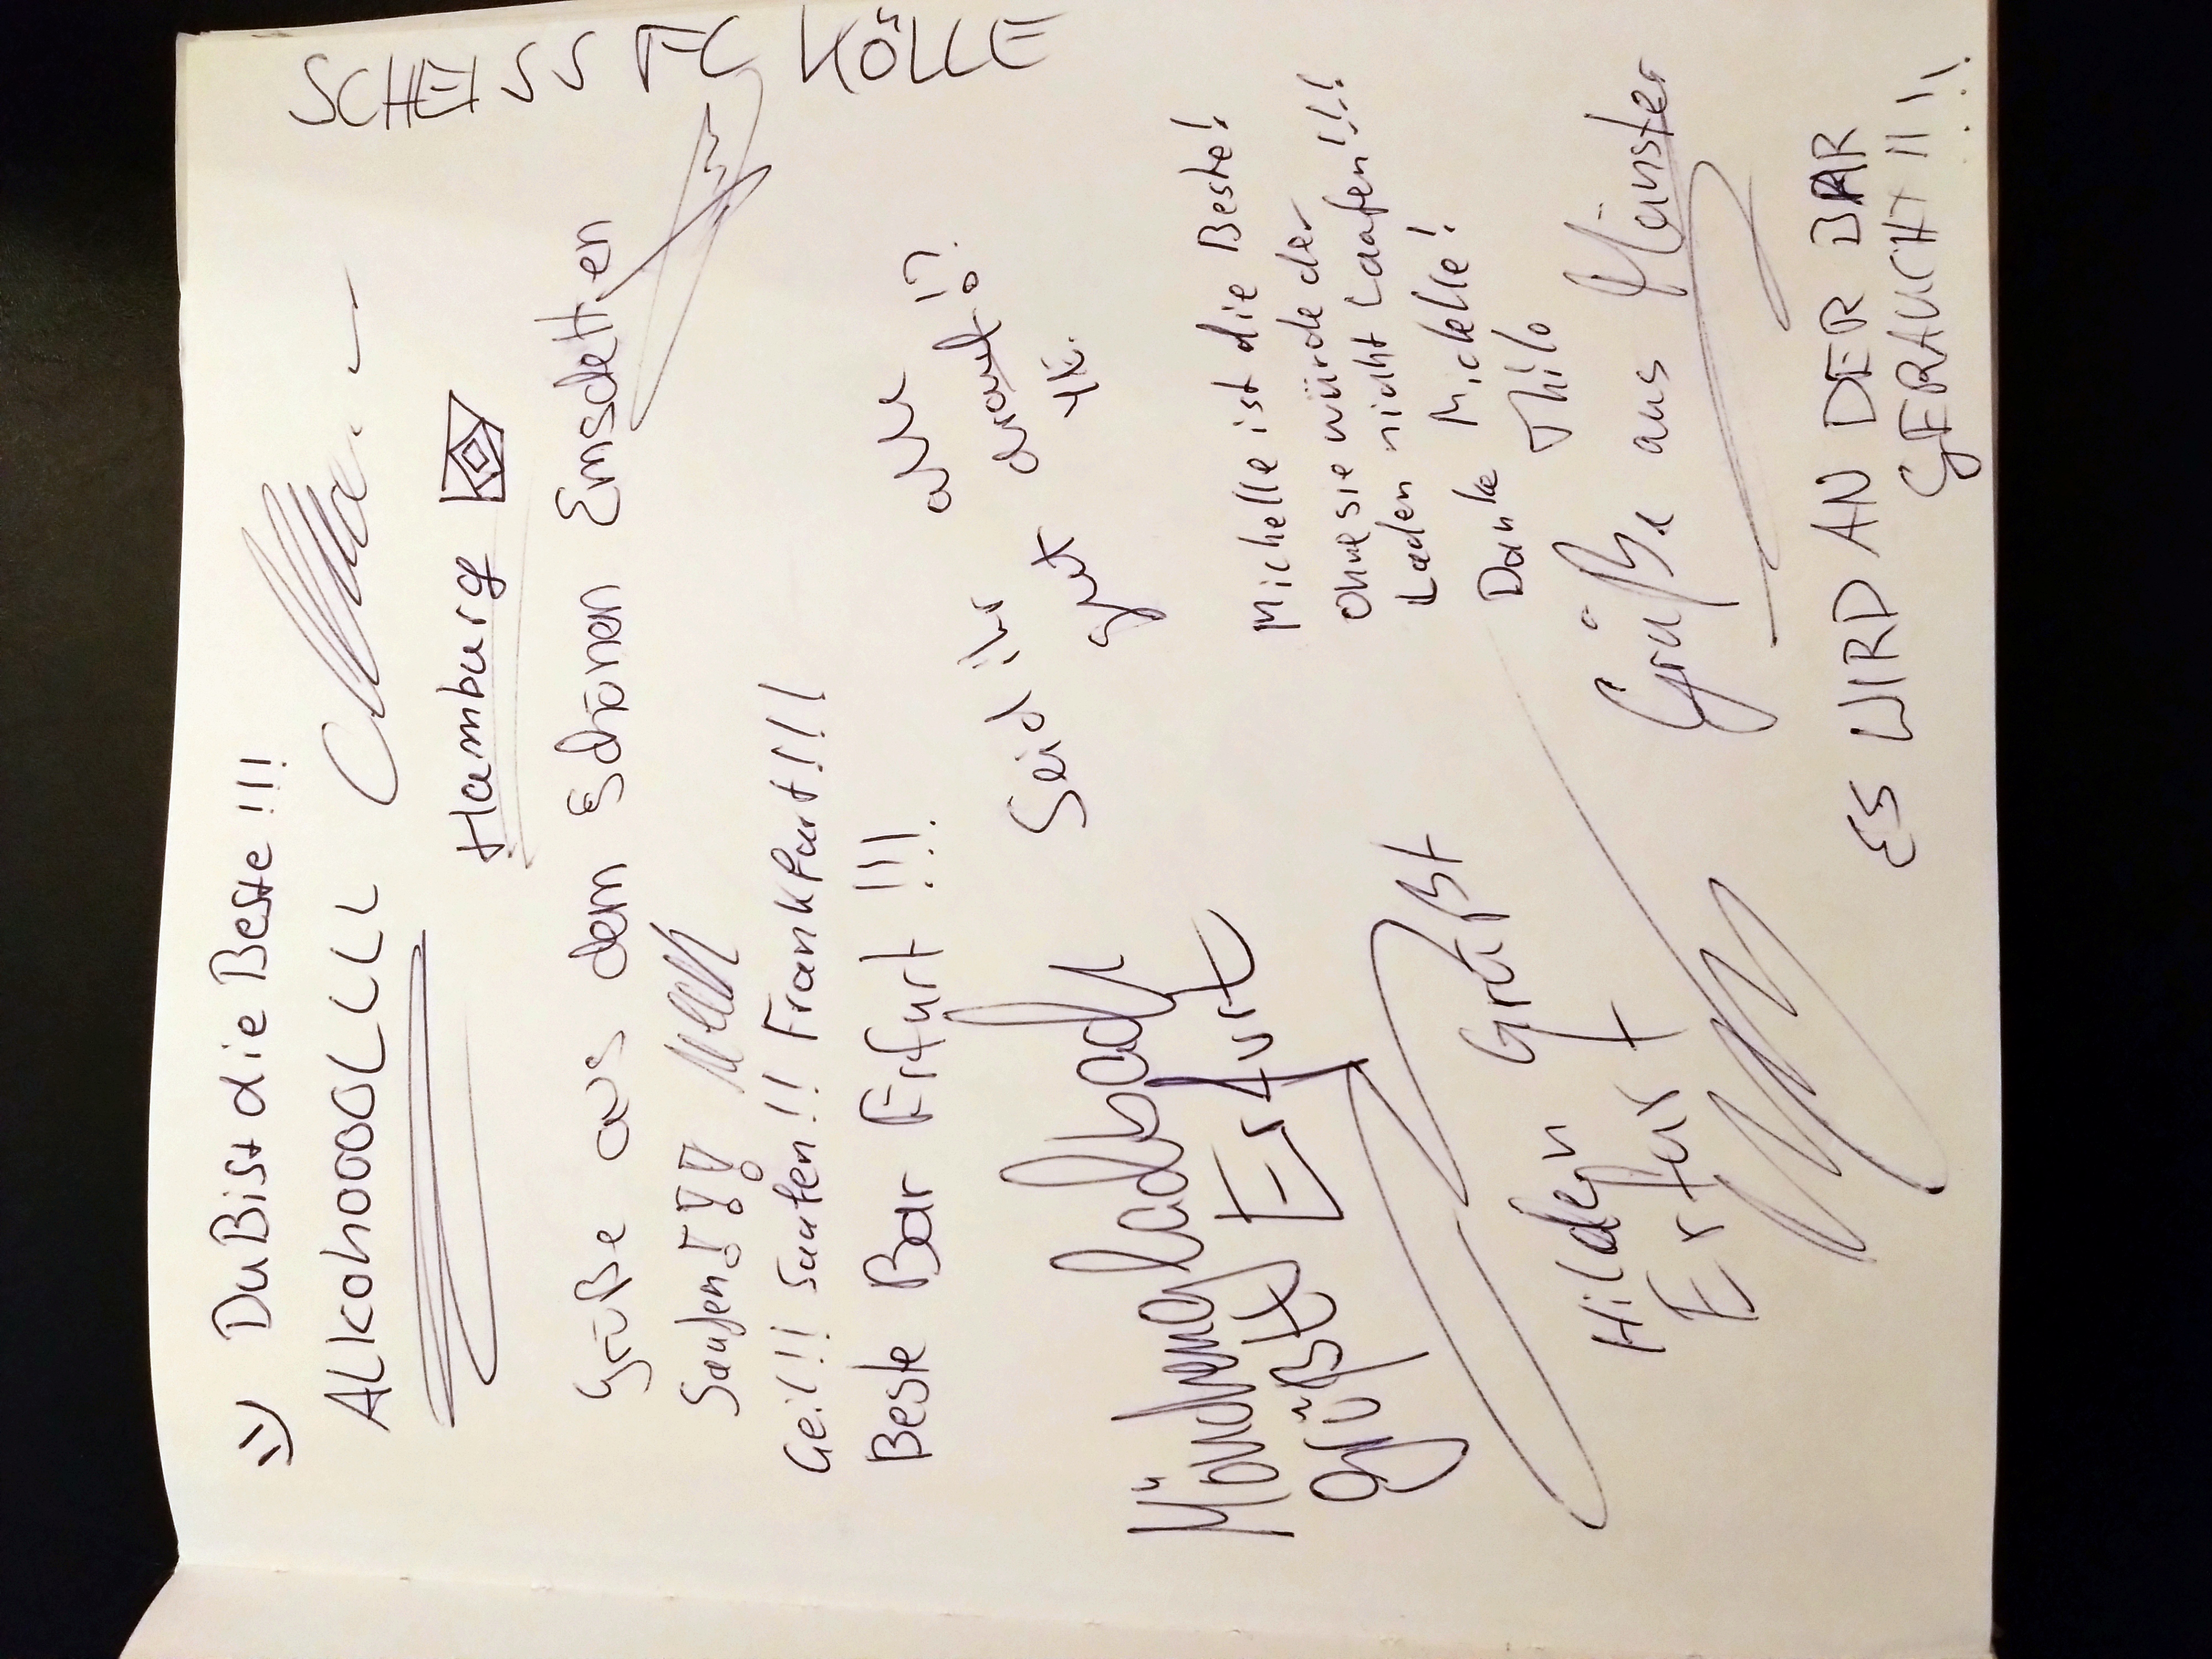 =) Du Bist die Beste !!!
ALKohooooLLLL
Hamburg
Grüße aus dem Schönen Emsdetten
Saufen!!!
Geil!! Saufen!! Frankfurt!!!!
Beste Bar Erfurt !!!
Seid ihr alle
gut drauf!?
Mönchengladbach
grüßt Erfurt
Michelle ist die Beste!
Ohne sie würde der
Laden nicht Laufen!!!!
Danke Michelle!
Thilo
Hilden Grüßt
Erfurt
Grüße aus Münster
ES WIRD AN DER BAR
GERAUCHT!!!!
SCHEISS FC KÖLLE